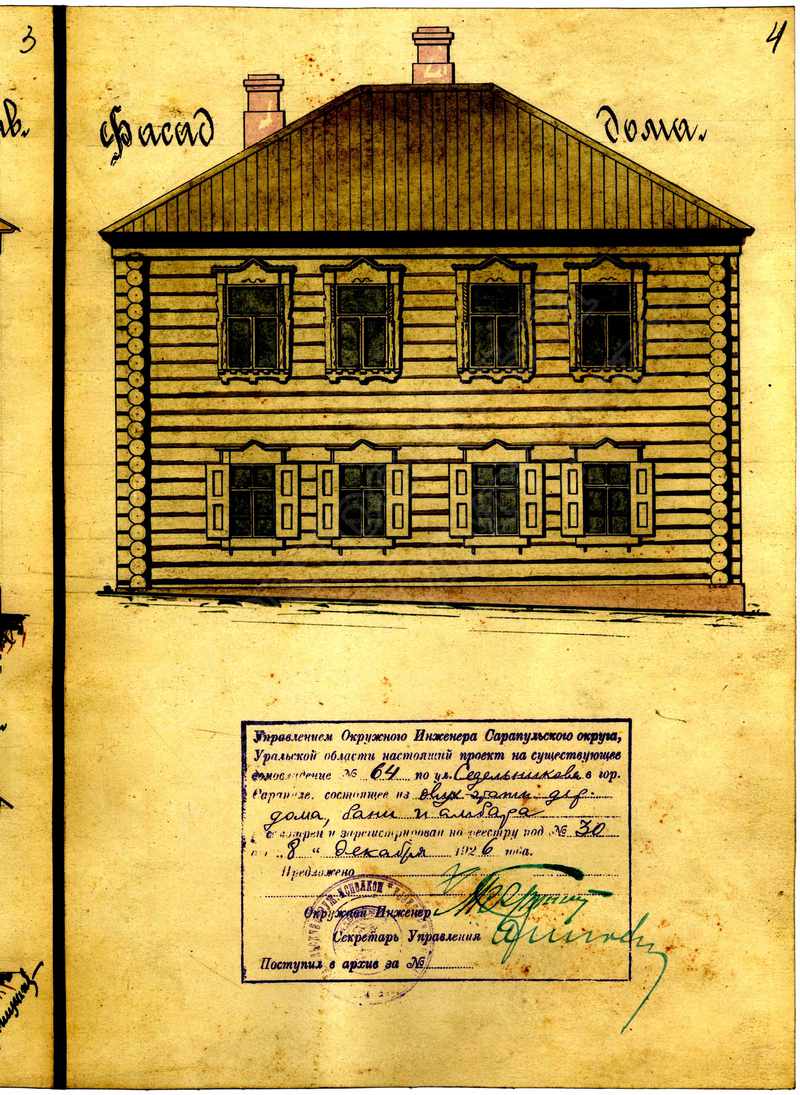 3
4
Фасад дома.
Управлением Окружного Инженера Сарапульского округа,
Уральской области настоящий проект на существующее
домовладение № 64 по ул. Седельникова в гор.
Сарапуле, состоящее из двух-этажн. дер.
дома, бани и амбара
рассмотрен и зарегистрирован по реестру под № 30
"8" декабря 1926 года.
Предложено
Окружной Инженер
Секретарь Управления
Поступил в архив за №